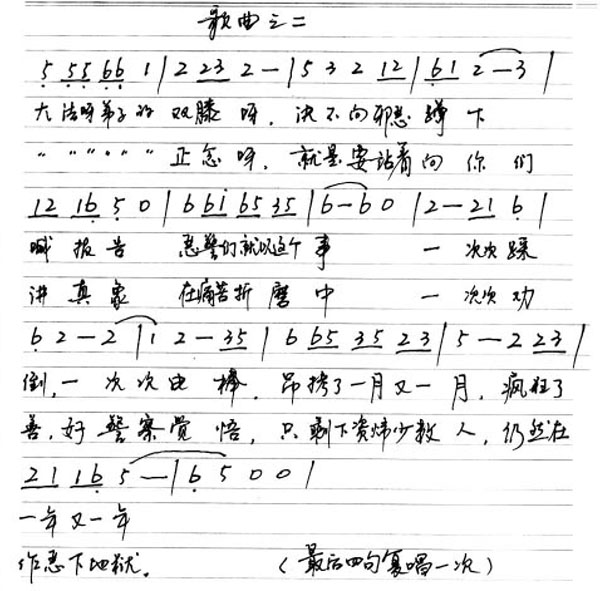 歌曲之二
5 55 66 1 | 2 23 2 — | 5 3 2 12 | 61 2 — 3 |
大法呀弟子的 双膝 呀，决不向邪恶 蹲 下
" " " " " " 正念 呀，就是要站着向 你 们
12 16 5 0 | 6 6i 65 35 | 6 — 6 0 | 2 — 21 6 |
喊 报 告 恶警们就以这个 事 一 次次踩
讲 真 象 在痛苦折 磨 中 一 次次 劝
6 2 — 2 | 1 2 — 35 | 6 65 35 23 | 5 — 2 23 |
倒，一 次次电 棒，吊铐了一月又一 月，疯狂了
善，好 警察觉 悟，只剩下 少数 人，仍然在
21 16 5 — | 6 5 0 0 |
一年又一年
作恶下地狱。 （最后四句复唱一次）